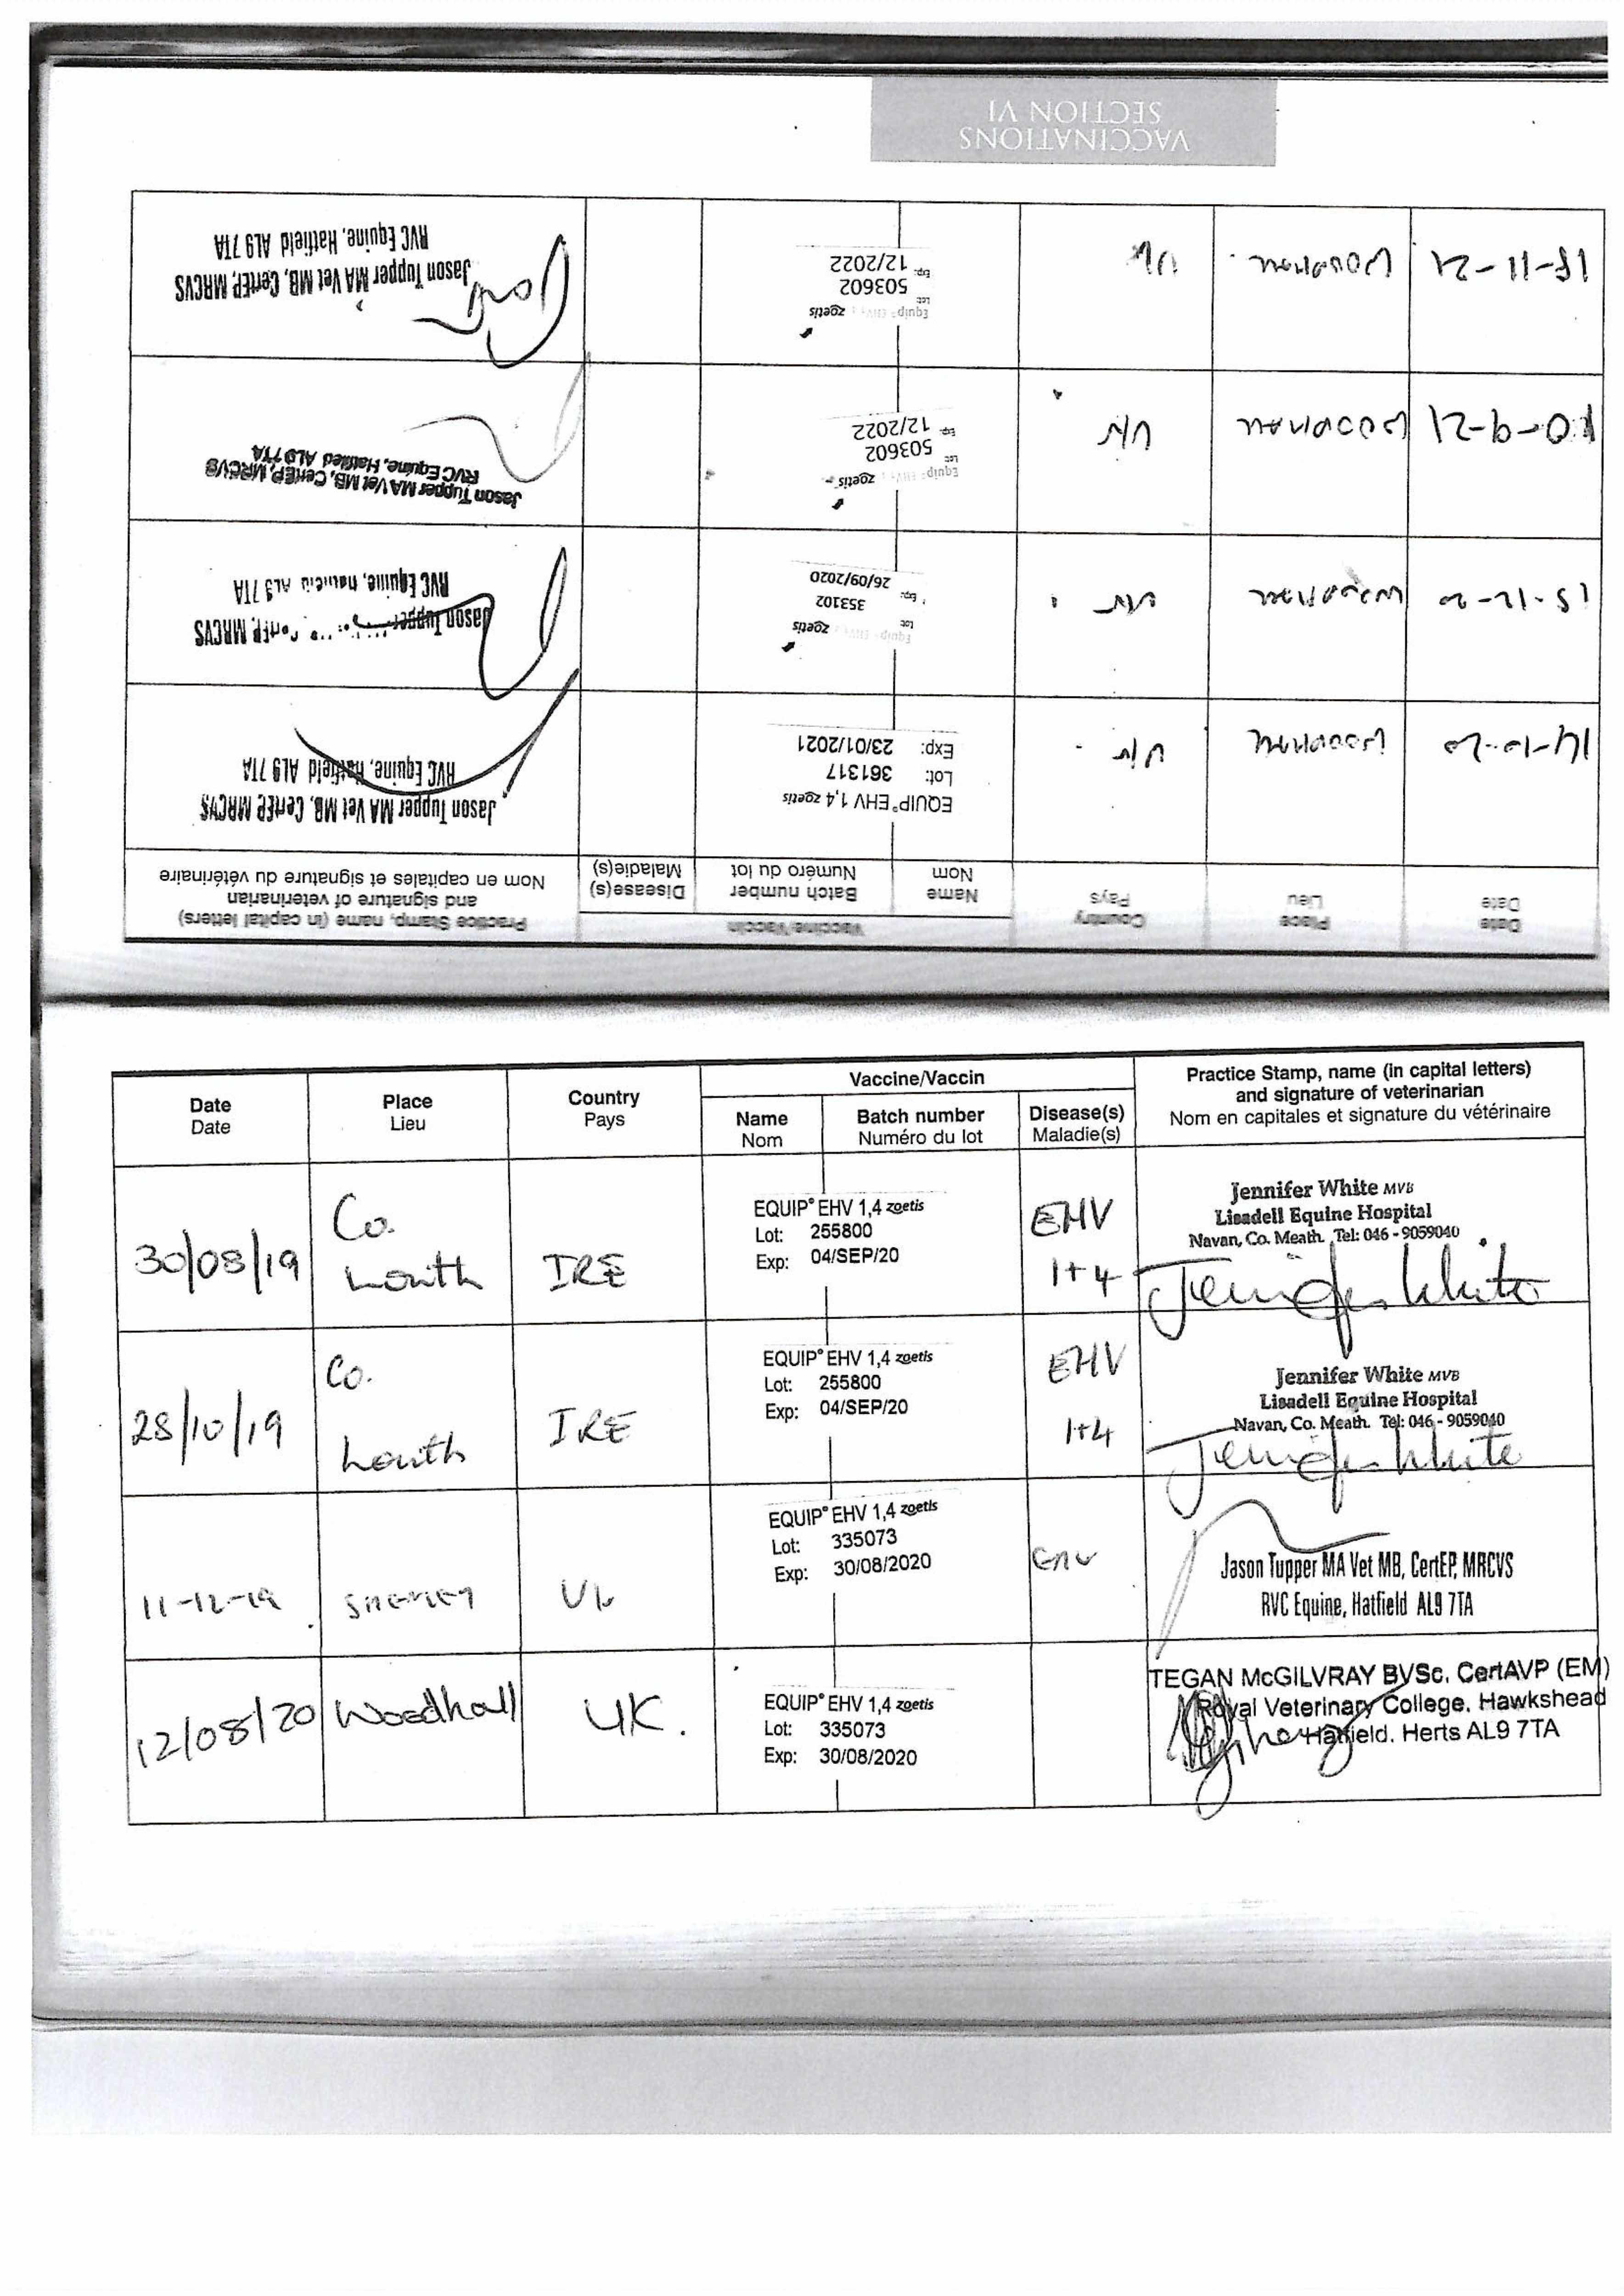 Date
Date
Place
Lieu
Country
Pays
Vaccine/Vaccin
Name
Nom
Batch number
Numéro du lot
Disease(s)
Maladie(s)
Practice Stamp, name (in capital letters)
and signature of veterinarian
Nom en capitales et signature du vétérinaire
30/08/19
Co.
Louth
IRE
EQUIP® EHV 1,4 zoetis
Lot: 255800
Exp: 04/SEP/20
EHV
1+4
Jennifer White MVB
Lisadell Equine Hospital
Navan, Co. Meath. Tel: 046 - 9059040
Jennifer White
28/10/19
Co.
Louth
IRE
EQUIP® EHV 1,4 zoetis
Lot: 255800
Exp: 04/SEP/20
EHV
1+4
Jennifer White MVB
Lisadell Equine Hospital
Navan, Co. Meath. Tel: 046 - 9059040
Jennifer White
11-12-19
UK
EQUIP® EHV 1,4 zoetis
Lot: 335073
Exp: 30/08/2020
EHV
Jason Tupper MA Vet MB, CertEP, MRCVS
RVC Equine, Hatfield AL9 7TA
12/08/20
Woodhall
UK.
EQUIP® EHV 1,4 zoetis
Lot: 335073
Exp: 30/08/2020
TEGAN McGILVRAY BVSc. CertAVP (EM)
Royal Veterinary College. Hawkshead
Hatfield. Herts AL9 7TA
Date
Date
Place
Lieu
Country
Pays
Vaccine/Vaccin
Name
Nom
Batch number
Numéro du lot
Disease(s)
Maladie(s)
Practice Stamp, name (in capital letters)
and signature of veterinarian
Nom en capitales et signature du vétérinaire
14-10-20
Woodhall
UK
EQUIP® EHV 1,4 zoetis
Lot: 361317
Exp: 23/01/2021
Jason Tupper MA Vet MB, CertEP, MRCVS
RVC Equine, Hatfield AL9 7TA
15-12-20
Woodhall
UK
Equip® EHV 1,4 zoetis
Lot: 353102
Exp: 26/09/2020
Jason Tupper CertEP, MRCVS
RVC Equine, Hatfield AL9 7TA
10-9-21
Woodhall
UK
Equip® EHV 1,4 zoetis
Lot: 503602
Exp: 12/2022
Jason Tupper MA Vet MB, CertEP, MRCVS
RVC Equine, Hatfield AL9 7TA
Woodhall
UK
Equip® EHV 1,4 zoetis
Lot: 503602
Exp: 12/2022
Jason Tupper MA Vet MB, CertEP, MRCVS
RVC Equine, Hatfield AL9 7TA
VACCINATIONS
SECTION VI